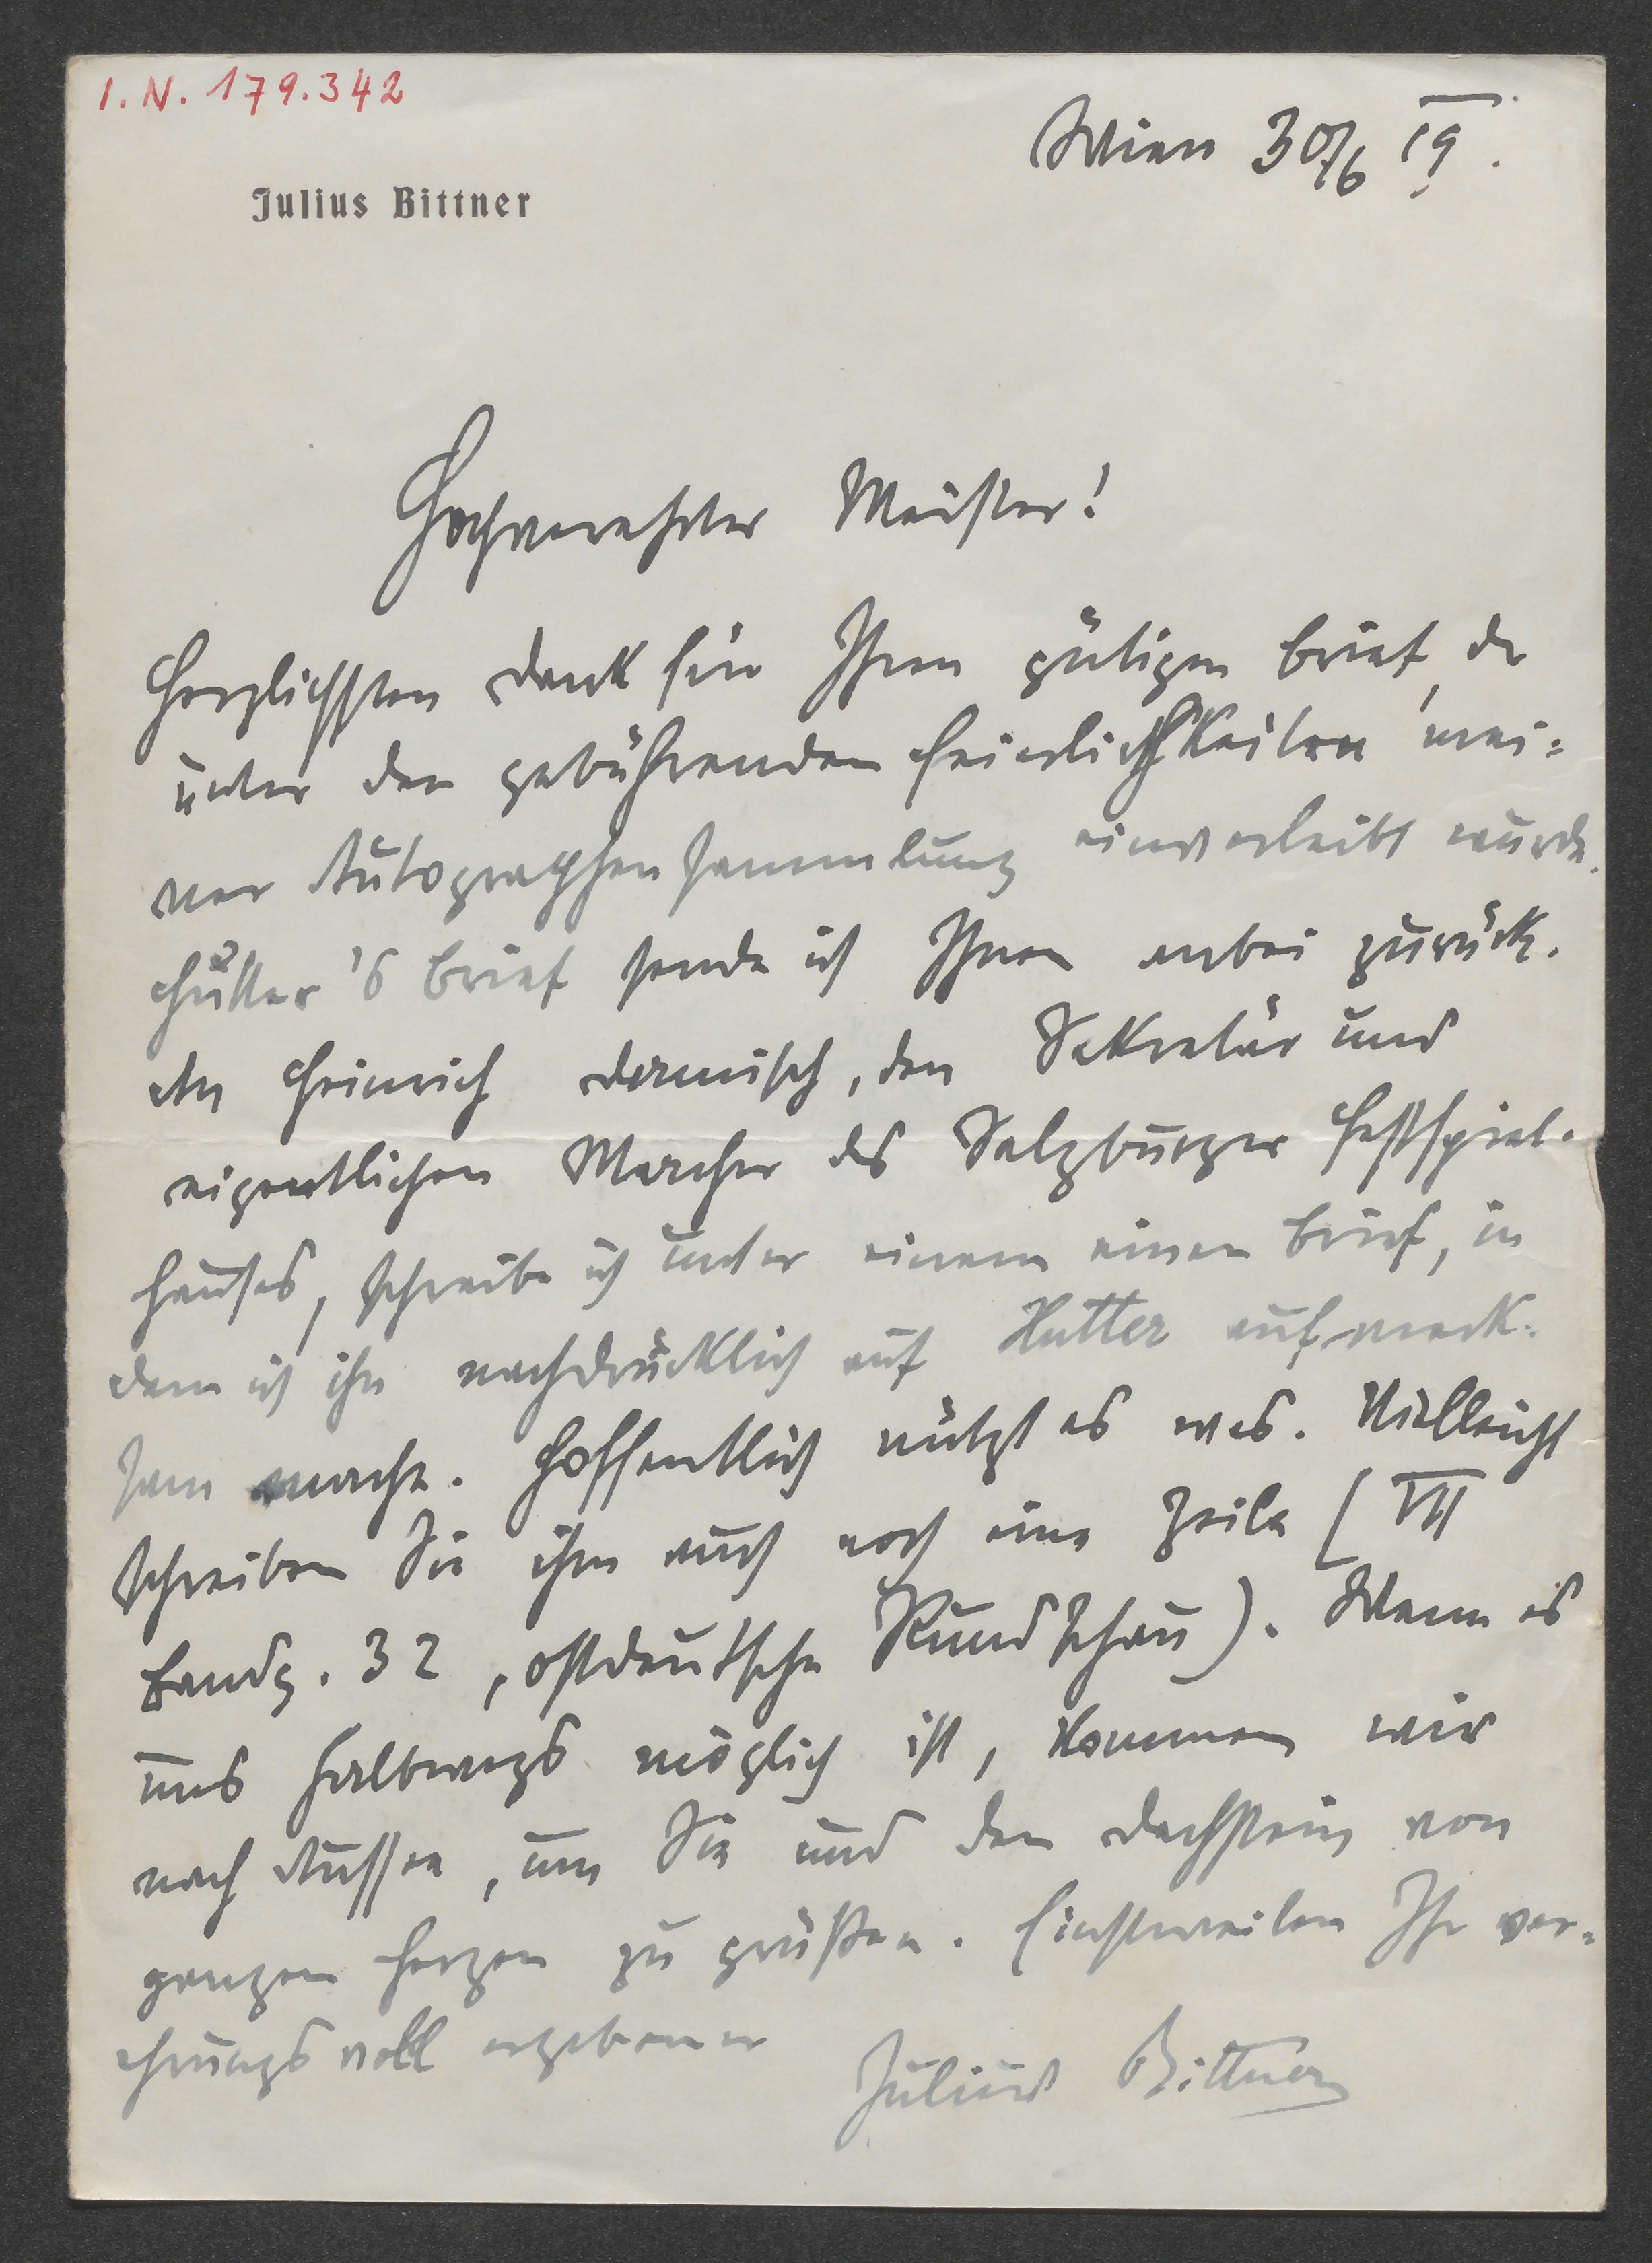 I.N. 179.342
Wien 30/6 19.
Julius Bittner
Hochverehrter Meister!
Herzlichsten Dank für Ihren gütigen Brief, der
unter den gebührenden Feierlichkeiten mei=
ner Autographensammlung einverleibt wurde.
Hutter's Brief sende ich Ihnen anbei zurück.
An Heinrich Damisch, den Sekretär und
eigentlichen Macher des Salzburger Festspiel-
hauses, schreibe ich unter einem einen Brief, in
dem ich ihn nachdrücklich auf Hutter aufmerk-
sam mache. Hoffentlich nützt es was. Vielleicht
schreiben Sie ihm auch noch eine Zeile (VII
Bandg. 32, ostdeutsche Rundschau). Wenn es
uns halbwegs möglich ist, kommen wir
nach Aussee, um Sie und den Dachstein von
ganzem Herzen zu grüßen. Einstweilen Ihr ver=
ehrungsvoll ergebener
Julius Bittner